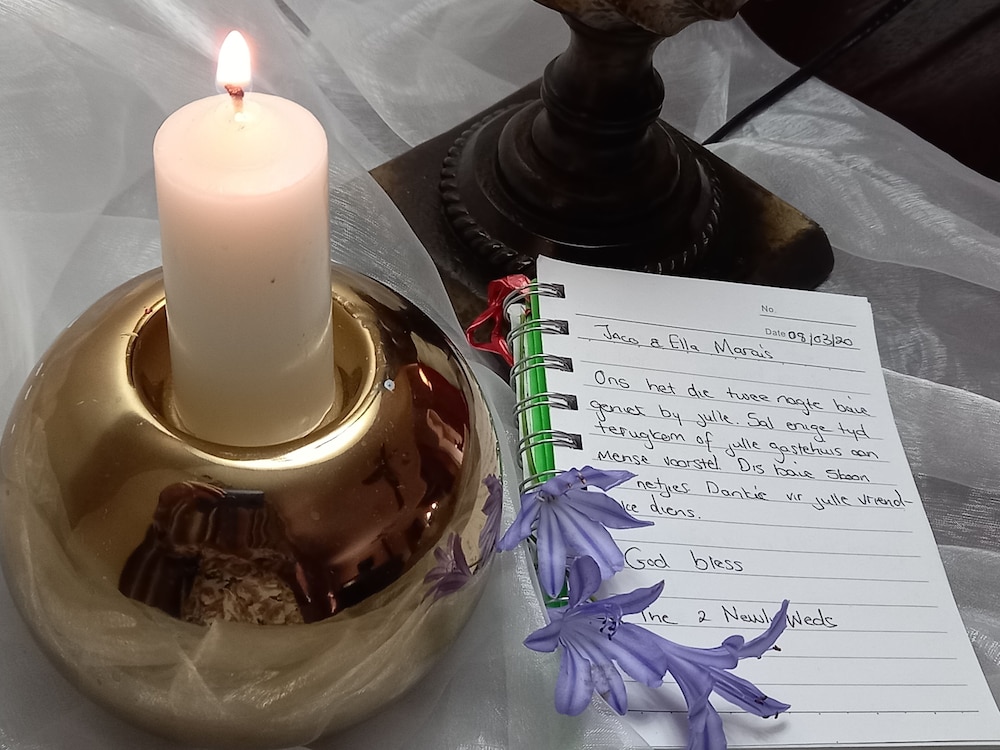 No.
Date 08/03/20
Jaco & Ella Marais
Ons het die twee nagte baie
geniet by julle. Sal enige tyd
terugkom of julle gastehuis aan
mense voorstel. Dis baie skoon
netjies Dankie vir julle vriend-
ke diens.
God bless
The 2 Newly Weds